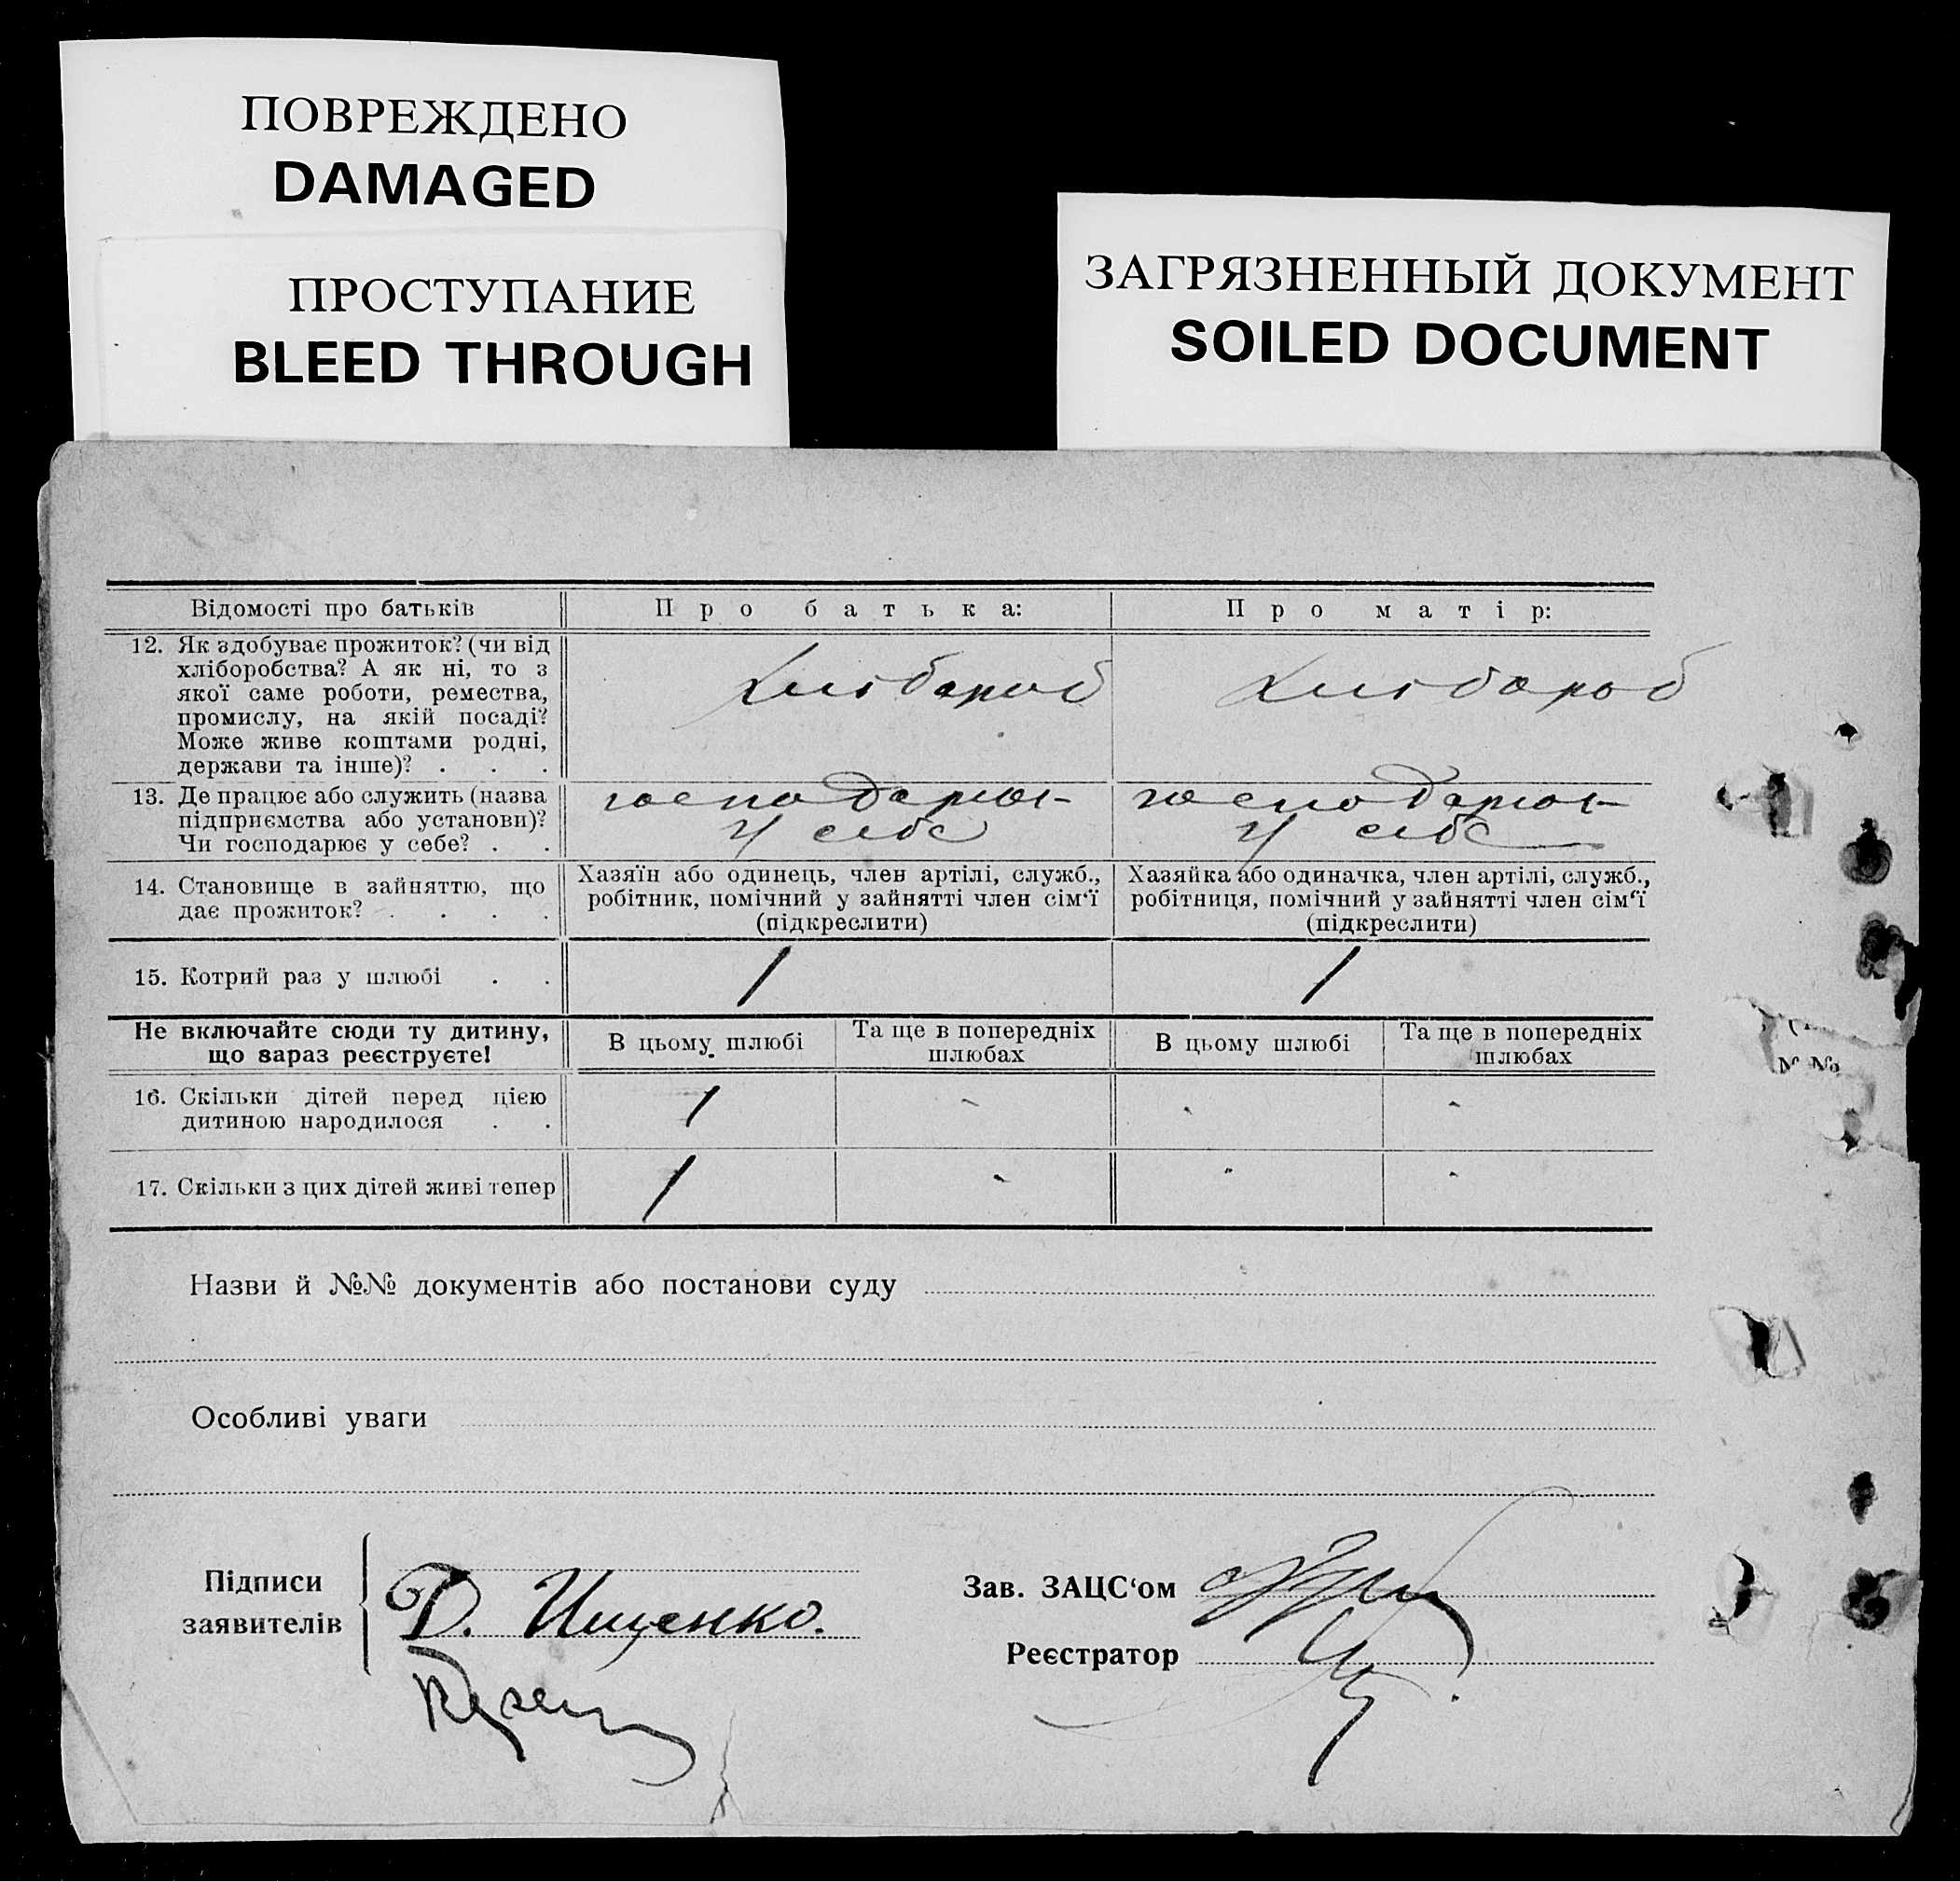 ПОВРЕЖДЕНО
DAMAGED
ПРОСТУПАНИЕ
BLEED THROUGH
ЗАГРЯЗНЕННЫЙ ДОКУМЕНТ
SOILED DOCUMENT
Відомості про батьків Про батька: Про матір:
12. Як здобуває прожиток? (чи від
хліборобства? А як ні, то з
якої саме роботи, ремества,
промислу, на якій посаді?
Може живе коштами родні,
держави та інше)? . . .
Хлібороб Хлібороб
13. Де працює або служить (назва
підприємства або установи)?
Чи господарює у себе? . .
господарює
у себе
господарює
у себе
14. Становище в зайняттю, що
дає прожиток? . . . .
Хазяїн або одинець, член артілі, служб.,
робітник, помічний у зайнятті член сім‘ї
(підкреслити)
Хазяйка або одиначка, член артілі, служб.,
робітниця, помічний у зайнятті член сім‘ї
(підкреслити)
15. Котрий раз у шлюбі . . 1 1
Не включайте сюди ту дитину,
що зараз реєструєте!
В цьому шлюбі
Та ще в попередніх
шлюбах
В цьому шлюбі
Та ще в попередніх
шлюбах
16. Скільки дітей перед цією
дитиною народилося . .
1 - - -
17. Скільки з цих дітей живі тепер 1 - - -
Назви й №№ документів або постанови суду
Особливі уваги
Підписи
заявителів
Д. Ищенко.
Зав. ЗАЦС‘ом
Реєстратор